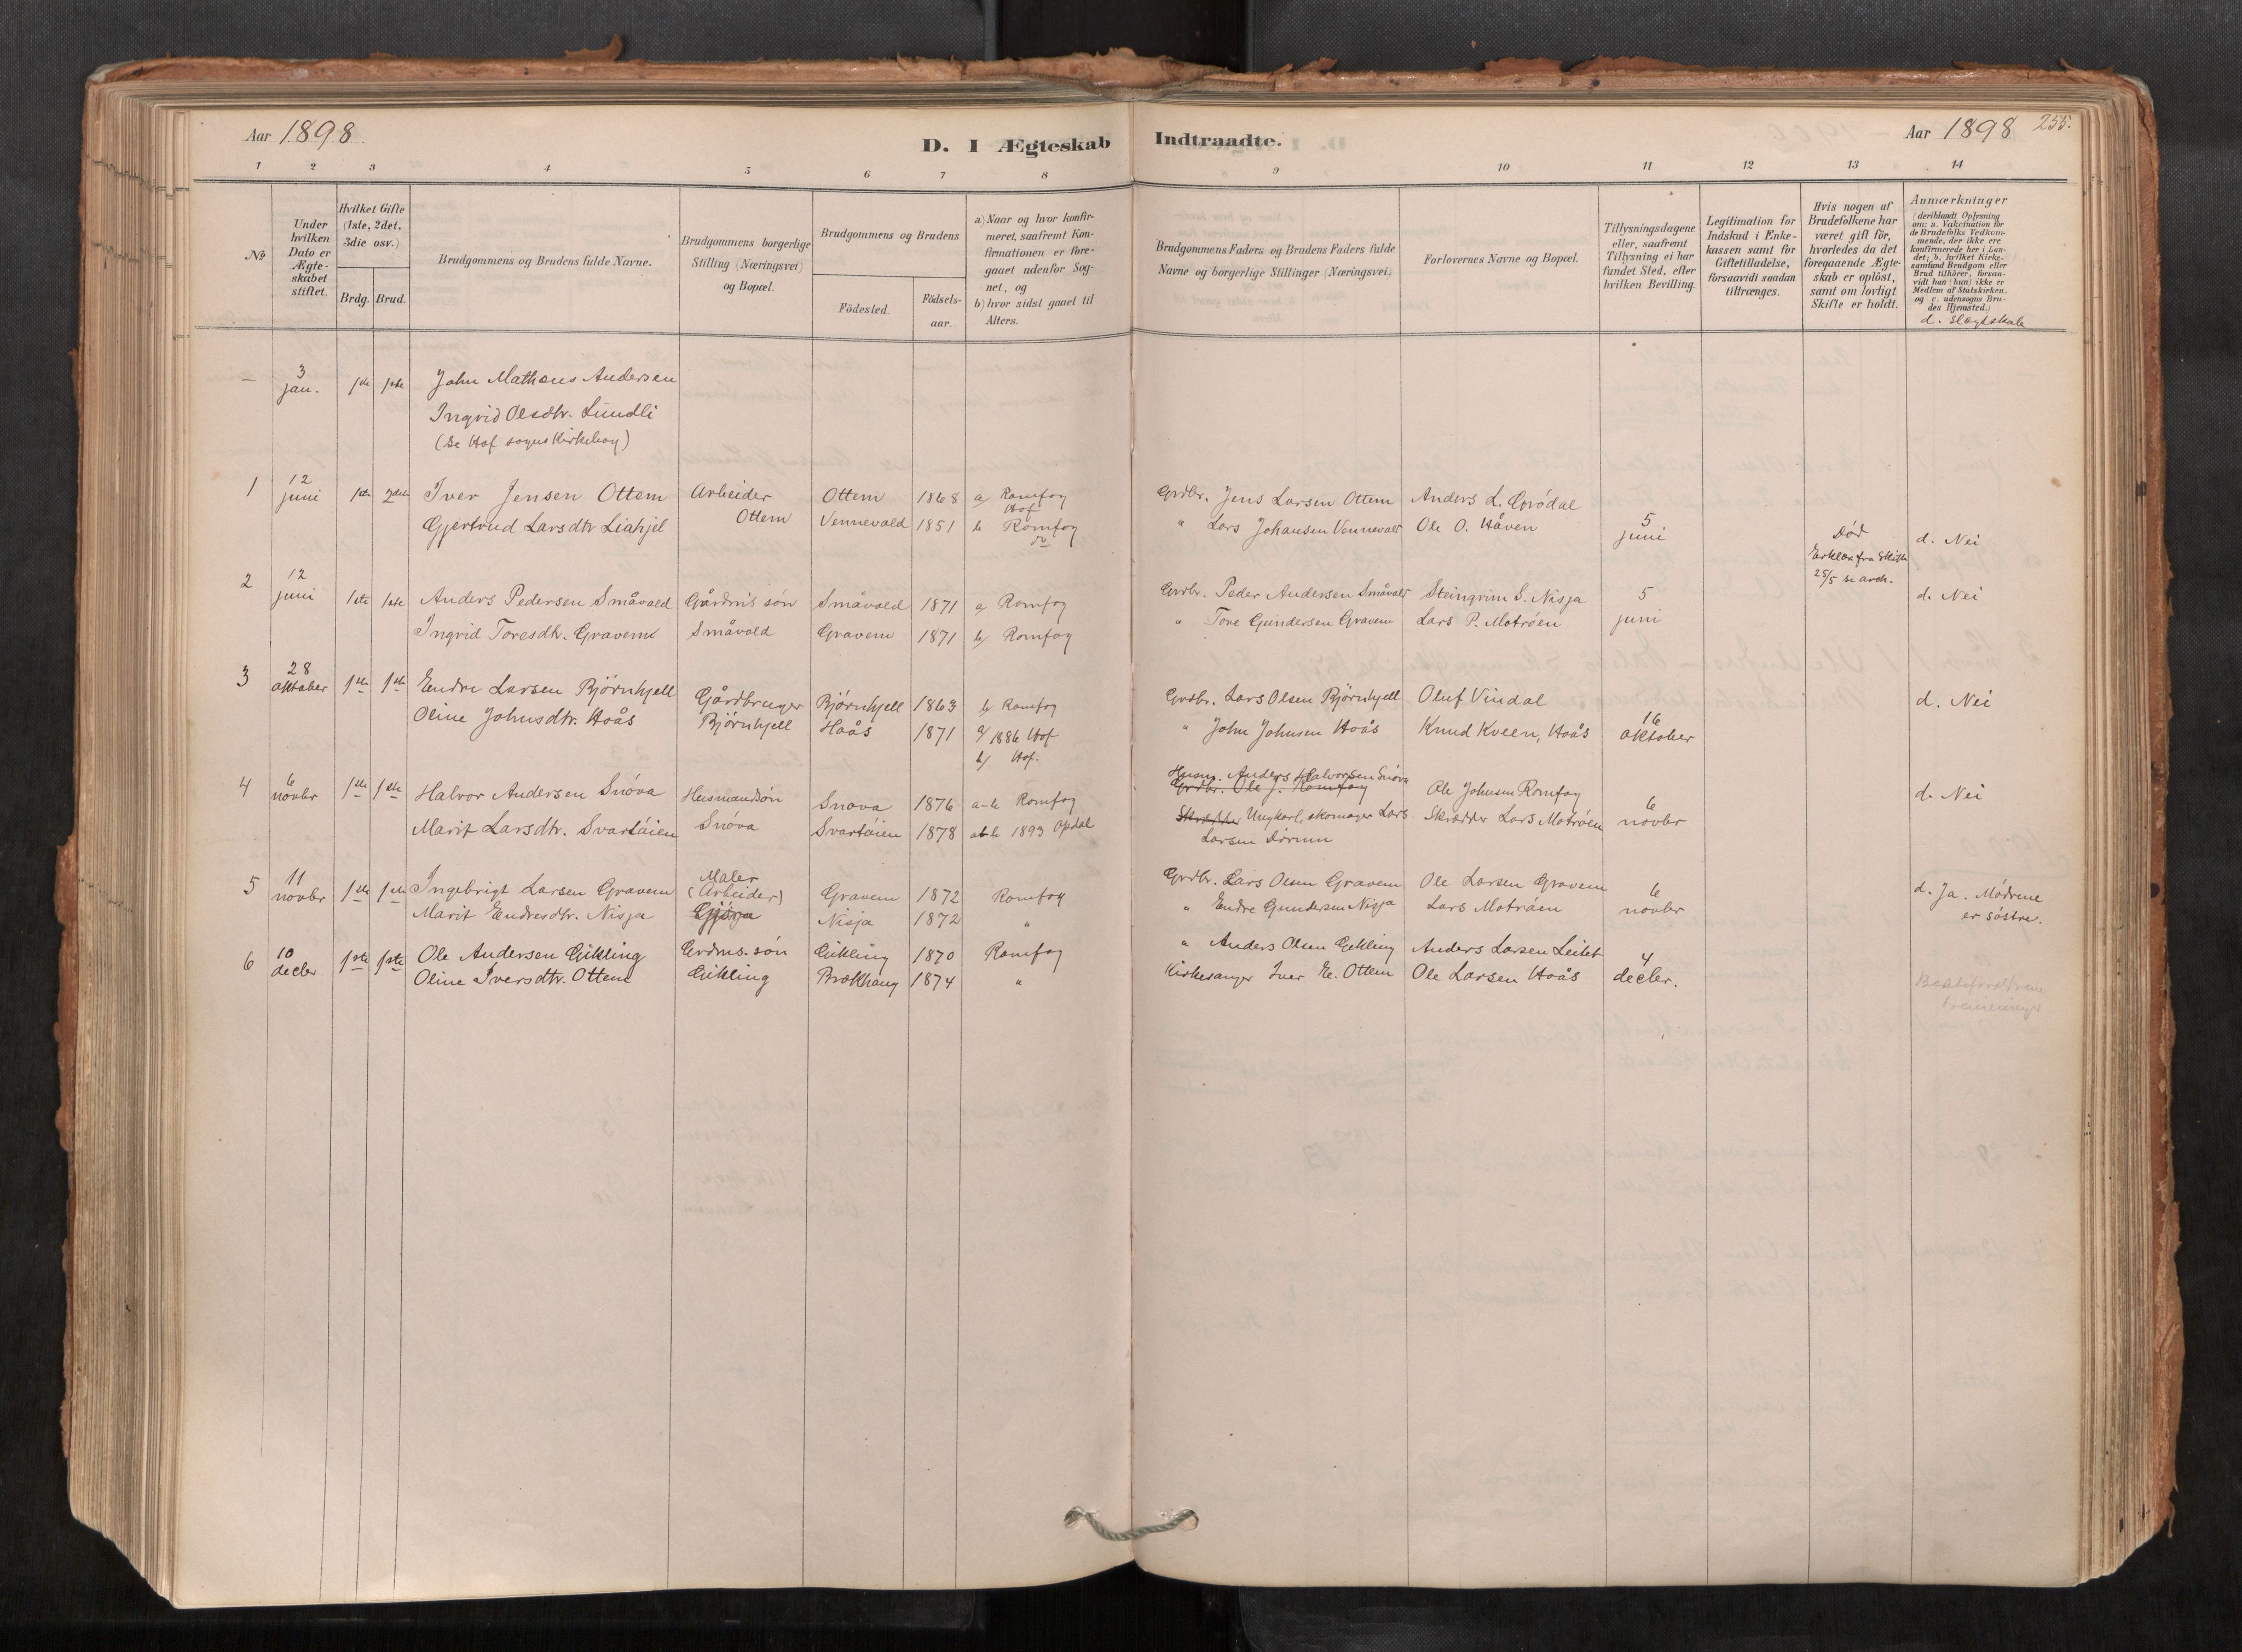 Aar 1898.
D. I Ægteskab Indtraadte.
Aar 1898 255.
1 2 3 4 5 6 7 8 9 10 11 12 13 14
No
Under
hvilken
Dato er
Ægte-
skabet
stiftet.
Hvilket Gifte
(1ste, 2det,
3die osv.)
Brdg. Brud.
Brudgommens og Brudens fulde Navne.
Brudgommens borgerlige
Stilling (Næringsvei)
og Bopæl.
Brudgommens og Brudens
Födested.
Födsels-
aar.
a) Naar og hvor konfir-
meret, saafremt Kon-
firmationen er fore-
gaaet udenfor Sog-
net, og
b) hvor sidst gaaet til
Alters.
Brudgommens Faders og Brudens Faders fulde
Navne og borgerlige Stillinger (Næringsvei)
Forlovernes Navne og Bopæl.
Tillysningsdagene
eller, saafremt
Tillysning ei har
fundet Sted, efter
hvilken Bevilling.
Legitimation for
Indskud i Enke-
kassen samt for
Giftetilladelse,
forsaavidt saadan
tiltrænges.
Hvis nogen af
Brudefolkene har
været gift för,
hvorledes da det
foregaaende Ægte-
skab er oplöst,
samt om lovligt
Skifte er holdt.
Anmærkninger
(deriblandt Oplysning
om: a. Vakcination for
de Brudefolks Vedkom-
mende, der ikke ere
konfirmerede her i Lan-
det; b. hvilket Kirke-
samfund Brudgom eller
Brud tilhörer, forsaa-
vidt han (hun) ikke er
Medlem af Statskirken,
og c. udensogns Bru-
des Hjemsted.)
d. Slægtskab
— 3 jan. 1ste 1ste John Mathæus Andersen
Ingrid Olsdtr. Lundli
(Se Hof sogns Kirkebog)
1 12 juni 1ste 2det Iver Jensen Ottem Arbeider Ottem 1868 a) Romfog Hof Grdbr. Jens Larsen Ottem Anders L.
Gjertrud Larsdtr Liahjel Ottem Vennevald 1851 b Romfog do " Lars Johansen Vennevald Ole O. Håven 5 juni Død d. Nei
Erklær. fra Skifte
25/5 se arch.
2 12 juni 1ste 1ste Anders Pedersen Småvald Gårdm's søn Småvald 1871 a) Romfog Grdbr. Peder Andersen Småvald Steingrim S. Nisja 5 d. Nei
Ingrid Toresdtr. Gravem Småvold Gravem 1871 b) Romfog " Tore Gundersen Gravem Lars P. Motrøen juni
3 28 oktober 1ste 1ste Endre Larsen Bjørnhjell Gårdbruger Bjørnhjell 1863 b Romfog Grdbr. Lars Olsen Bjørnhjell Oluf Vindal d. Nei
Oline Johnsdtr. Hoås Bjørnhjell Hoås 1871 a/ 1886 Hof " John Johnsen Hoås Knud Kveen, Hoås 16 oktober
b/ Hof.
4 6 novbr 1ste 1ste Halvor Andersen Snøva Husmandsøn Snøva 1876 a-b Romfog Husm. Anders Halvorsen Snøva
Grdbr. Ole J. Romfog Ole Johnsen Romfog d. Nei
Marit Larsdtr. Svartøien Snøva Svartøien 1878 a b 1893 Opdal Skrædder Ungkarl, skomager Lars Skrædder Lars Motrøen 6 novbr
Larsen Dørum
5 11 novbr 1ste 1ste Ingebrigt Larsen Gravem Maler (Arbeider) Gravem 1872 Romfog Grdbr. Lars Olsen Gravem Ole Larsen Gravem d. Ja. Mødrene
Marit Endresdtr. Nisja Gjøra Nisja 1872 " " Endre Gundersen Nisja Lars Motrøen 6 novbr er søstre.
6 10 decbr 1ste 1ste Ole Andersen Gikling Grdms. søn Gikling 1870 Romfog " Anders Olsen Gikling Anders Larsen Leitet
Oline Iversdtr. Ottem Gikling Brækhaug 1874 " Kirkesanger Iver E. Ottem Ole Larsen Hoås 4 decbr.